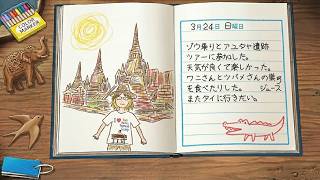 COLOR MARKER
3月24日 日曜日
ゾウ乗りとアユタヤ遺跡
ツアーに参加した。
天気が良くて楽しかった。
ワニさんとツバメさんの巣
を食べたりした。 ジュース
またタイに行きたい。